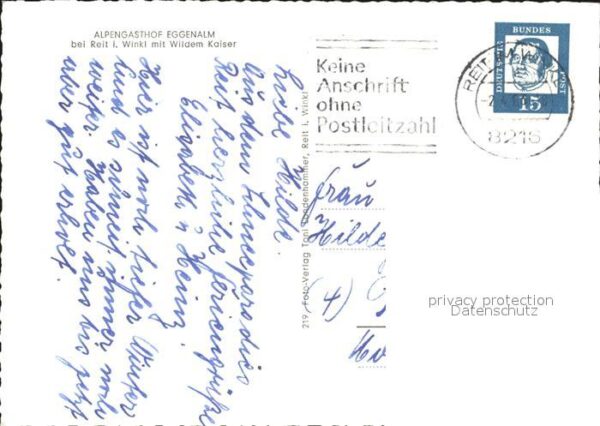 ALPENGASTHOF EGGENALM
bei Reit i. Winkl mit Wildem Kaiser
Liebe Hilde.
Aus dem Schneeparadies
Reit herzliche Feriengrüße
Elisabeth u Heinz.
Hier ist noch tiefer Winter
und es schneit immer noch
weiter. Haben uns bis jetzt
aber gut erholt.
219. Foto-Verlag Toni Lindenhammer, Reit i. Winkl
Keine
Anschrift
ohne
Postleitzahl
REIT IM WINKL
8216
DEUTSCHE
BUNDES
POST
15
Frau
Hilde
(4)
privacy protection
Datenschutz